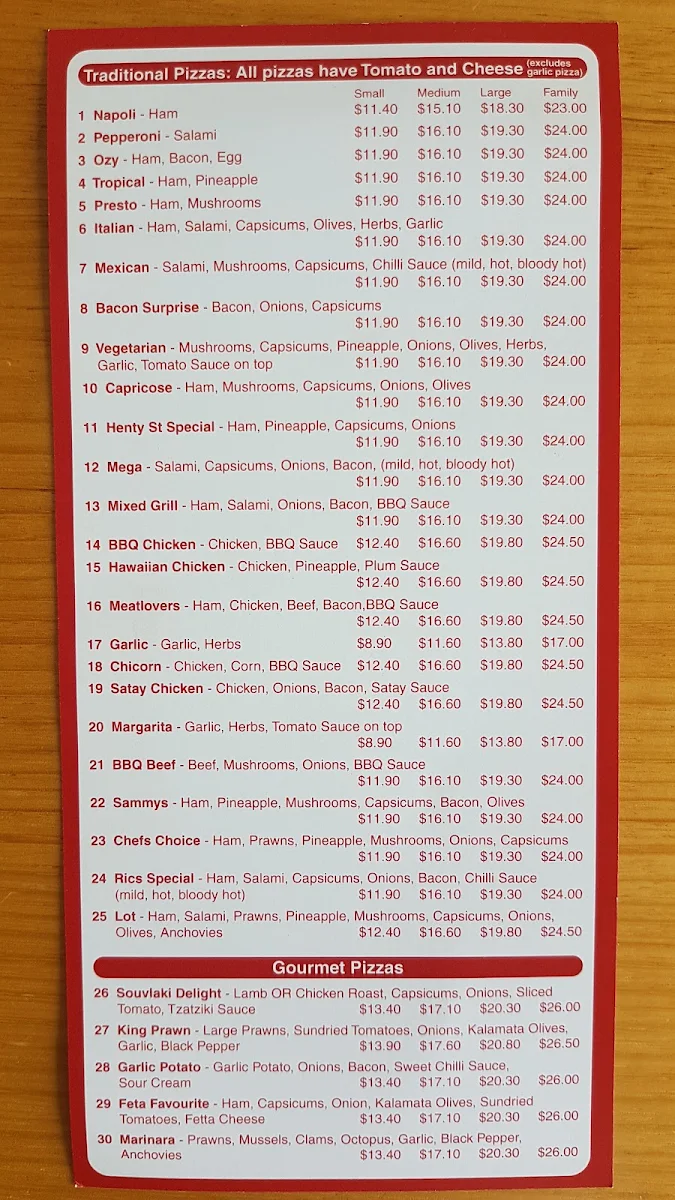 Traditional Pizzas: All pizzas have Tomato and Cheese (excludes garlic pizza)
Small Medium Large Family
1 Napoli - Ham $11.40 $15.10 $18.30 $23.00
2 Pepperoni - Salami $11.90 $16.10 $19.30 $24.00
3 Ozy - Ham, Bacon, Egg $11.90 $16.10 $19.30 $24.00
4 Tropical - Ham, Pineapple $11.90 $16.10 $19.30 $24.00
5 Presto - Ham, Mushrooms $11.90 $16.10 $19.30 $24.00
6 Italian - Ham, Salami, Capsicums, Olives, Herbs, Garlic
$11.90 $16.10 $19.30 $24.00
7 Mexican - Salami, Mushrooms, Capsicums, Chilli Sauce (mild, hot, bloody hot)
$11.90 $16.10 $19.30 $24.00
8 Bacon Surprise - Bacon, Onions, Capsicums
$11.90 $16.10 $19.30 $24.00
9 Vegetarian - Mushrooms, Capsicums, Pineapple, Onions, Olives, Herbs,
Garlic, Tomato Sauce on top $11.90 $16.10 $19.30 $24.00
10 Capricose - Ham, Mushrooms, Capsicums, Onions, Olives
$11.90 $16.10 $19.30 $24.00
11 Henty St Special - Ham, Pineapple, Capsicums, Onions
$11.90 $16.10 $19.30 $24.00
12 Mega - Salami, Capsicums, Onions, Bacon, (mild, hot, bloody hot)
$11.90 $16.10 $19.30 $24.00
13 Mixed Grill - Ham, Salami, Onions, Bacon, BBQ Sauce
$11.90 $16.10 $19.30 $24.00
14 BBQ Chicken - Chicken, BBQ Sauce $12.40 $16.60 $19.80 $24.50
15 Hawaiian Chicken - Chicken, Pineapple, Plum Sauce
$12.40 $16.60 $19.80 $24.50
16 Meatlovers - Ham, Chicken, Beef, Bacon,BBQ Sauce
$12.40 $16.60 $19.80 $24.50
17 Garlic - Garlic, Herbs $8.90 $11.60 $13.80 $17.00
18 Chicorn - Chicken, Corn, BBQ Sauce $12.40 $16.60 $19.80 $24.50
19 Satay Chicken - Chicken, Onions, Bacon, Satay Sauce
$12.40 $16.60 $19.80 $24.50
20 Margarita - Garlic, Herbs, Tomato Sauce on top
$8.90 $11.60 $13.80 $17.00
21 BBQ Beef - Beef, Mushrooms, Onions, BBQ Sauce
$11.90 $16.10 $19.30 $24.00
22 Sammys - Ham, Pineapple, Mushrooms, Capsicums, Bacon, Olives
$11.90 $16.10 $19.30 $24.00
23 Chefs Choice - Ham, Prawns, Pineapple, Mushrooms, Onions, Capsicums
$11.90 $16.10 $19.30 $24.00
24 Rics Special - Ham, Salami, Capsicums, Onions, Bacon, Chilli Sauce
(mild, hot, bloody hot) $11.90 $16.10 $19.30 $24.00
25 Lot - Ham, Salami, Prawns, Pineapple, Mushrooms, Capsicums, Onions,
Olives, Anchovies $12.40 $16.60 $19.80 $24.50
Gourmet Pizzas
26 Souvlaki Delight - Lamb OR Chicken Roast, Capsicums, Onions, Sliced
Tomato, Tzatziki Sauce $13.40 $17.10 $20.30 $26.00
27 King Prawn - Large Prawns, Sundried Tomatoes, Onions, Kalamata Olives,
Garlic, Black Pepper $13.90 $17.60 $20.80 $26.50
28 Garlic Potato - Garlic Potato, Onions, Bacon, Sweet Chilli Sauce,
Sour Cream $13.40 $17.10 $20.30 $26.00
29 Feta Favourite - Ham, Capsicums, Onion, Kalamata Olives, Sundried
Tomatoes, Fetta Cheese $13.40 $17.10 $20.30 $26.00
30 Marinara - Prawns, Mussels, Clams, Octopus, Garlic, Black Pepper,
Anchovies $13.40 $17.10 $20.30 $26.00